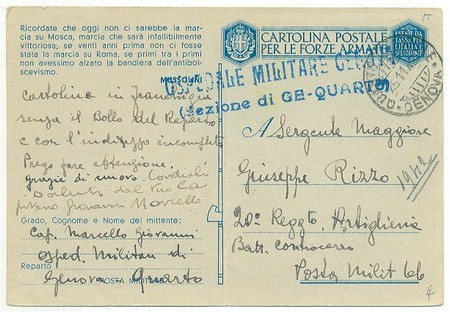 Ricordate che oggi non ci sarebbe la mar-
cia su Mosca, marcia che sarà infallibilmente
vittoriosa; se venti anni prima non ci fosse
stata la marcia su Roma, se primi tra i primi
non avessimo alzato la bandiera dell'antibol-
scevismo.
MUSSOLINI
Cartolina in franchigia
senza il Bollo del Reparto
e con l'indirizzo incompleto
Prego fare attenzione,
grazie di nuovo. Cordiali
saluto dal tuo Ca
pitano Giovanni Marcello
Grado, Cognome e Nome del mittente:
Cap. Marcello Giovanni
Osped. Militare di
Reparto
Genova Quarto
POSTA MILITARE
CARTOLINA POSTALE
PER LE FORZE ARMATE
OSPEDALE MILITARE
(Sezione di GE-QUARTO)
GENOVA
A Sergente Maggiore
Giuseppe Rizzo
1942
20º Reggto Artiglieria
Batt. Controcarro
Posta Milit 66